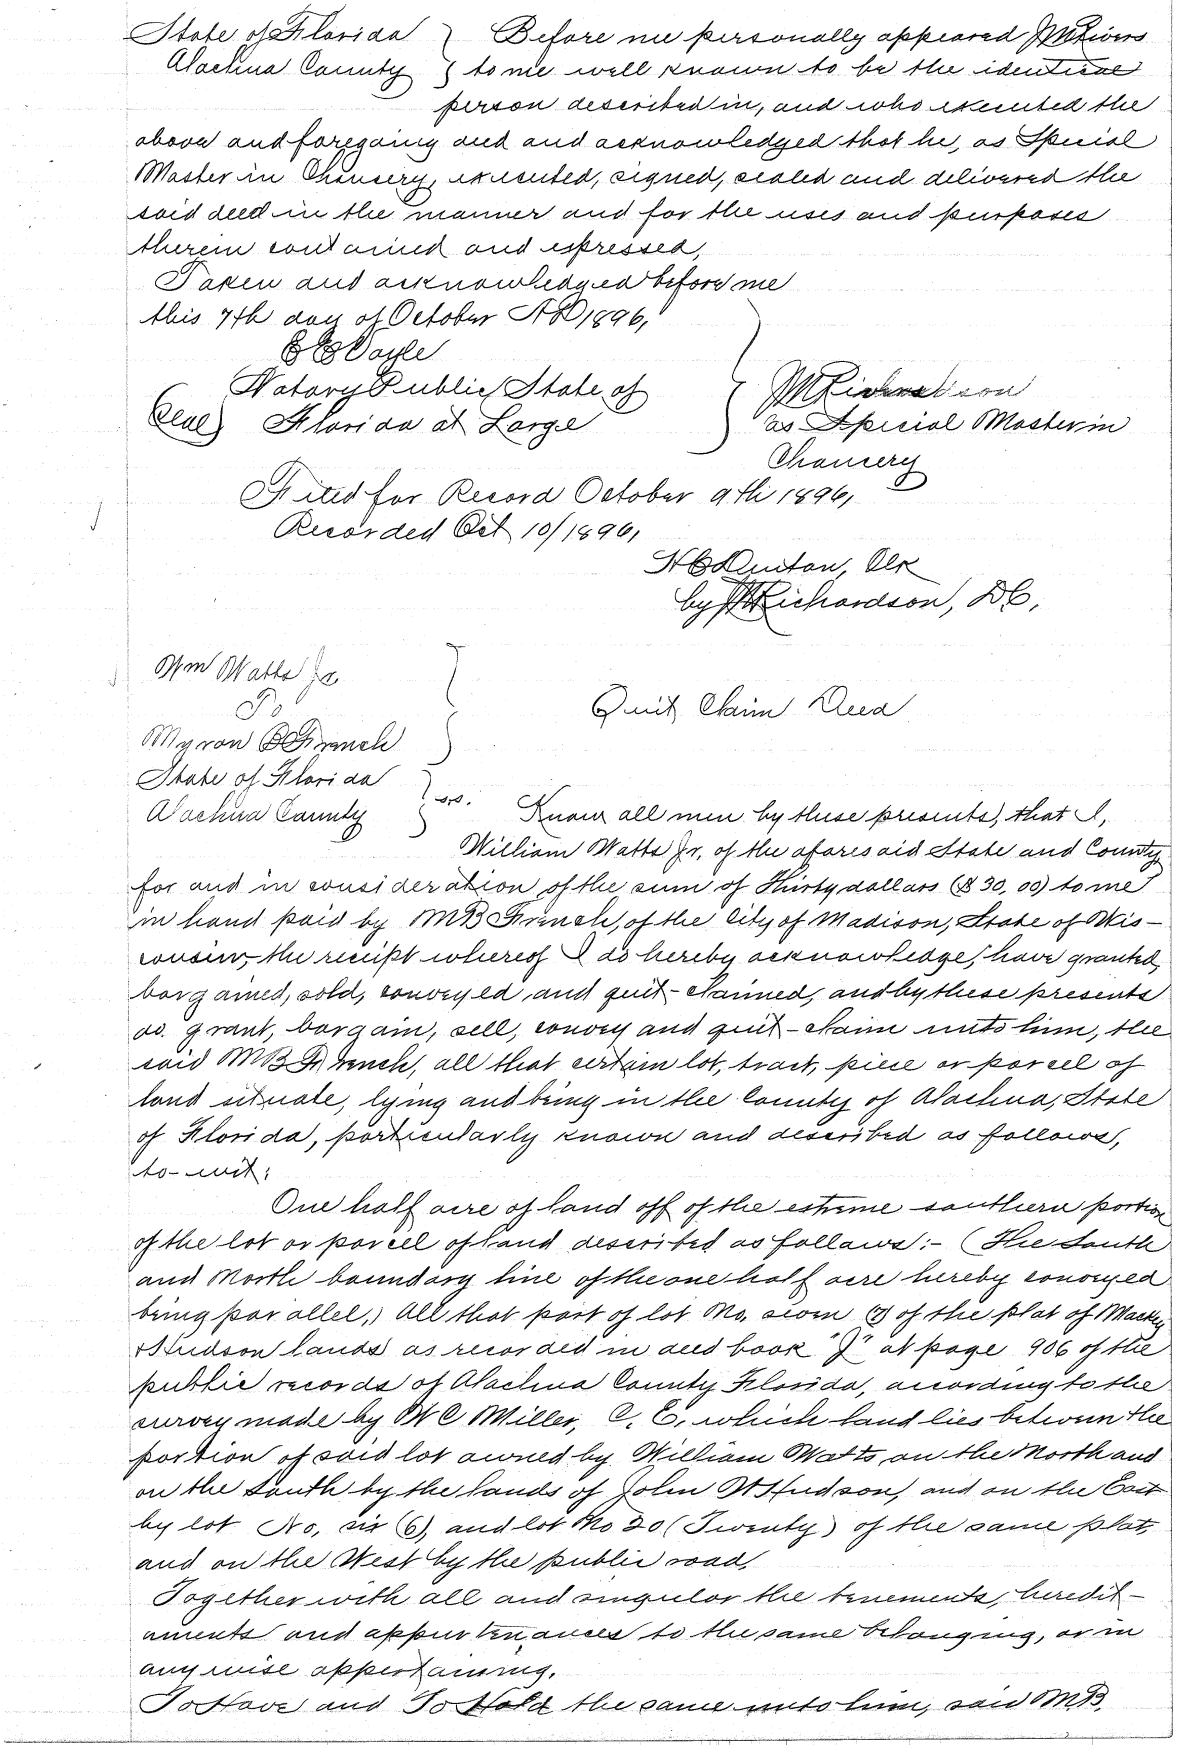 State of Florida } Before me personally appeared J M Rivers
Alachua County } to me well known to be the identical
person described in, and who executed the
above and foregoing deed and acknowledged that he, as Special
Master in Chancery, executed, signed, sealed and delivered the
said deed in the manner and for the uses and purposes
therein contained and expressed,
Taken and acknowledged before me
this 7th day of October AD 1896,
Voyle
Notary Public State of
(Seal) Florida at Large
J M
as Special Master in
Chancery
Filed for Record October 9th 1896,
Recorded Oct 10/1896,
H C Denton, Clk
by Richardson, DC,
Wm Watts Jr
To
Myron B French
Quit Claim Deed
State of Florida
Alachua County } ss. Know all men by these presents, that I,
William Watts Jr, of the aforesaid State and County
for and in consideration of the sum of Thirty dollars ($30,00) to me
in hand paid by M B French, of the City of Madison, State of Wis-
consin, the receipt whereof I do hereby acknowledge, have granted,
bargained, sold, conveyed, and quit-claimed, and by these presents
do. grant, bargain, sell, convey and quit-claim unto him, the
said M B French, all that certain lot, tract, piece or parcel of
land situate, lying and being in the County of Alachua, State
of Florida, particularly known and described as follows,
to-wit:
One half acre of land off of the extreme southern portion
of the lot or parcel of land described as follows:- (The South
and North boundary line of the one half acre hereby conveyed
being parallel,) All that part of lot No, seven (7) of the plat of Mackey
& Hudson lands as recorded in deed book "J" at page 906 of the
public records of Alachua County Florida, according to the
survey made by W C Miller, C. E, which land lies between the
portion of said lot owned by William Watts, on the North and
on the South by the lands of John W Hudson, and on the East
by lot No, six (6), and lot No 20 (Twenty) of the same plat,
and on the West by the public road,
Together with all and singular the tenements, heredit-
aments and appurtenances to the same belonging, or in
anywise appertaining.
To Have and To Hold the same unto him, said M.B.